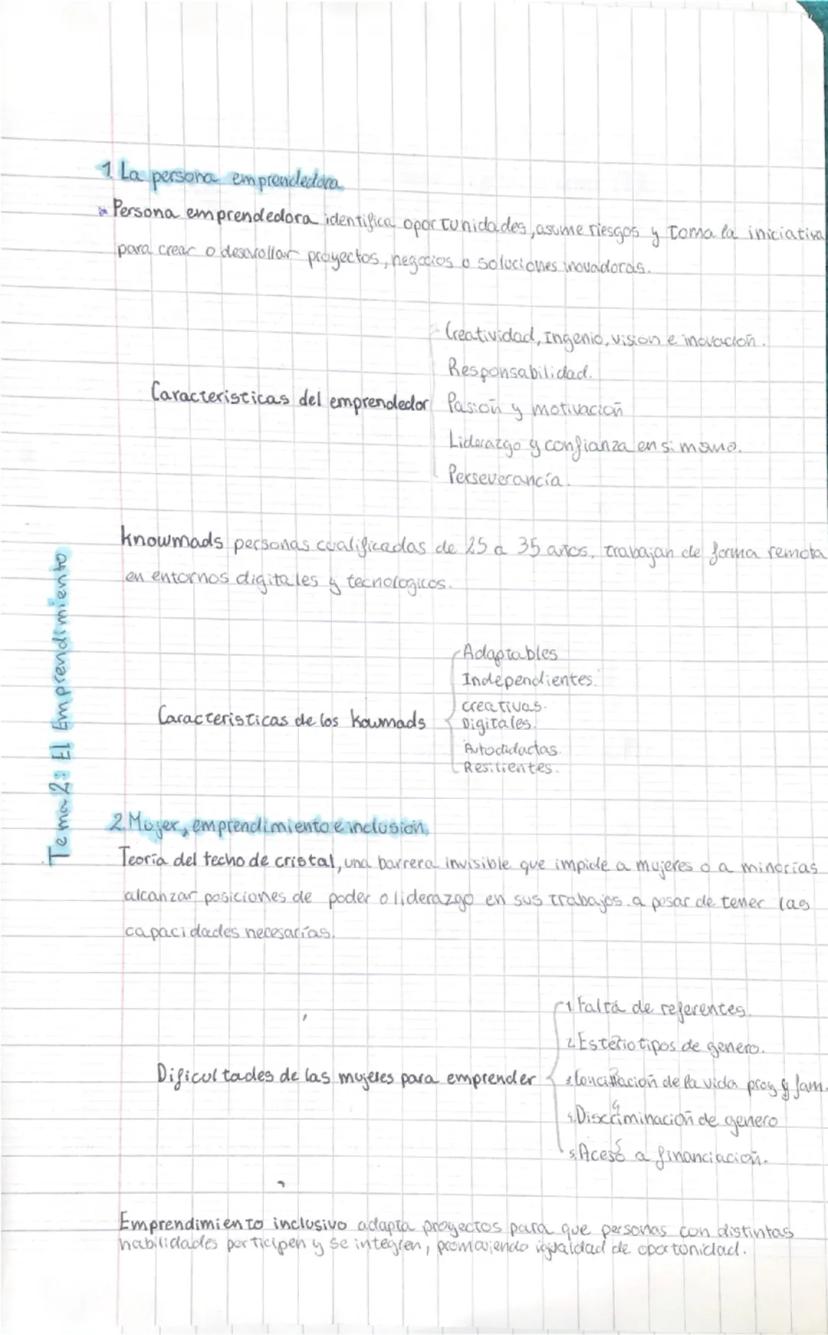 Tema 2: El Emprendimiento
1 La persona emprendedora
Persona emprendedora identifica oportunidades, asume riesgos y toma la iniciativa
para crear o desarrollar proyectos, negocios o soluciones inovadoras.
Creatividad, Ingenio, vision e inovación.
Responsabilidad.
Caracteristicas del emprendedor
Pasión y motivación
Liderazgo y confianza en si mismo.
Perseverancia.
Knowmads personas cualificadas de 25 a 35 años, trabajan de forma remota
en entornos digitales y tecnologicos.
Adaptables
Independientes.
creativas.
Caracteristicas de los Kowmads
Digitales.
Autodidactas
Resilientes.
2. Mujer, emprendimiento e inclusión.
Teoria del techo de cristal, una barrera invisible que impide a mujeres o a minorias
alcanzar posiciones de poder o liderazgo en sus trabajos a pesar de tener las
capacidades necesarias.
1 Falta de referentes.
2 Esteriotipos de genero.
Dificultades de las mujeres para emprender
3 Conciliación de la vida proy y fam.
4 Discriminación de genero
5. Aceso a financiación.
Emprendimiento inclusivo adapta proyectos para que personas con distintas
habilidades participen y se integren, promoviendo igualdad de oportunidad.